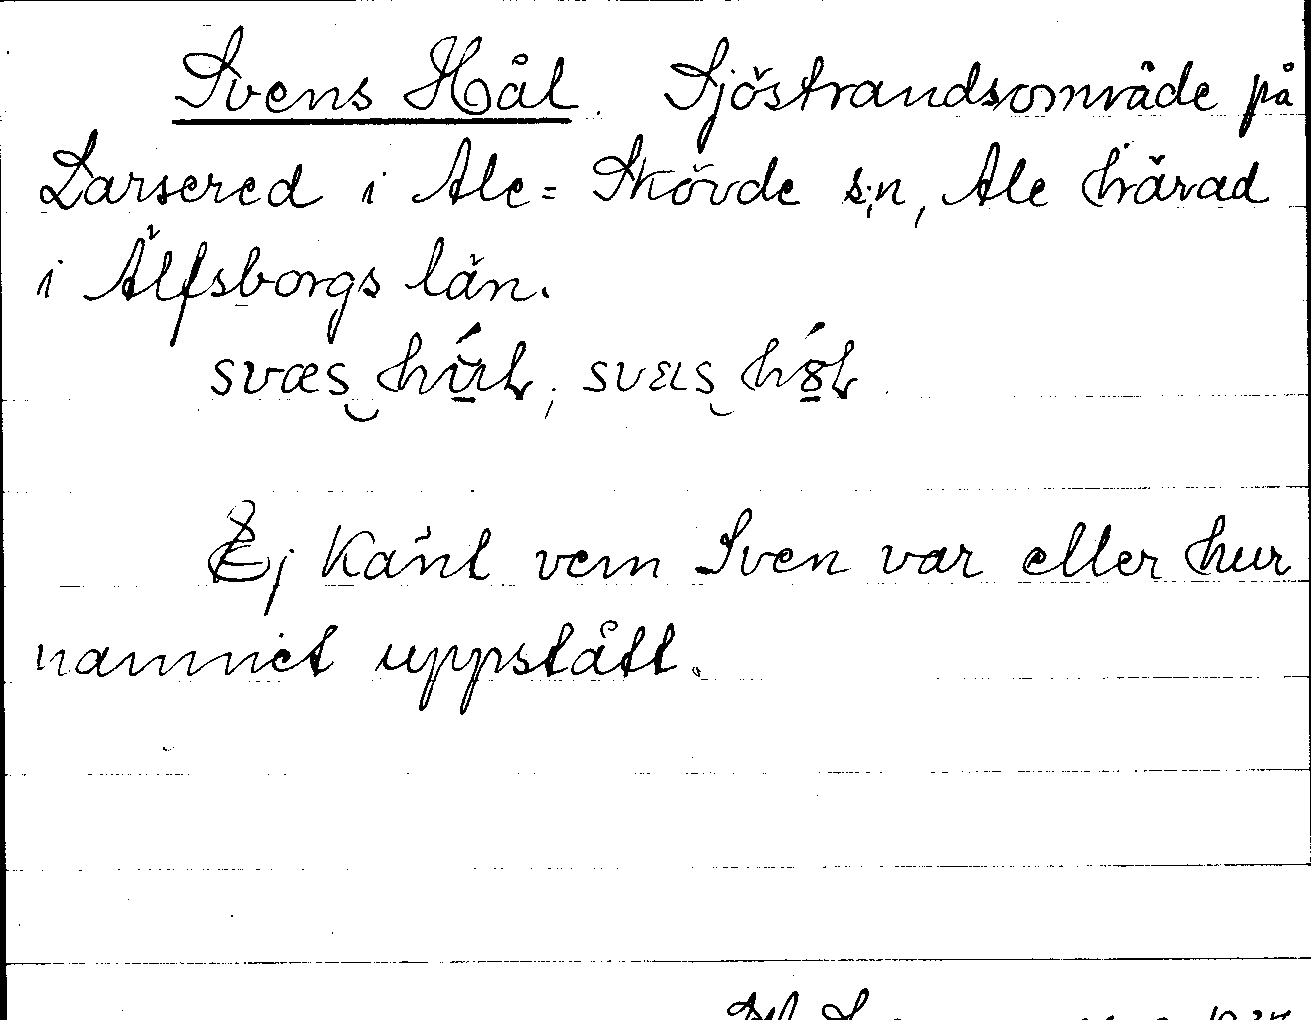 Svens Hål. Sjöstrandsområde på
Larsered i Ale-Skövde s:n, Ale härad
i Älfsborgs län.
Ej känt vem Sven var eller hur
namnet uppstått.